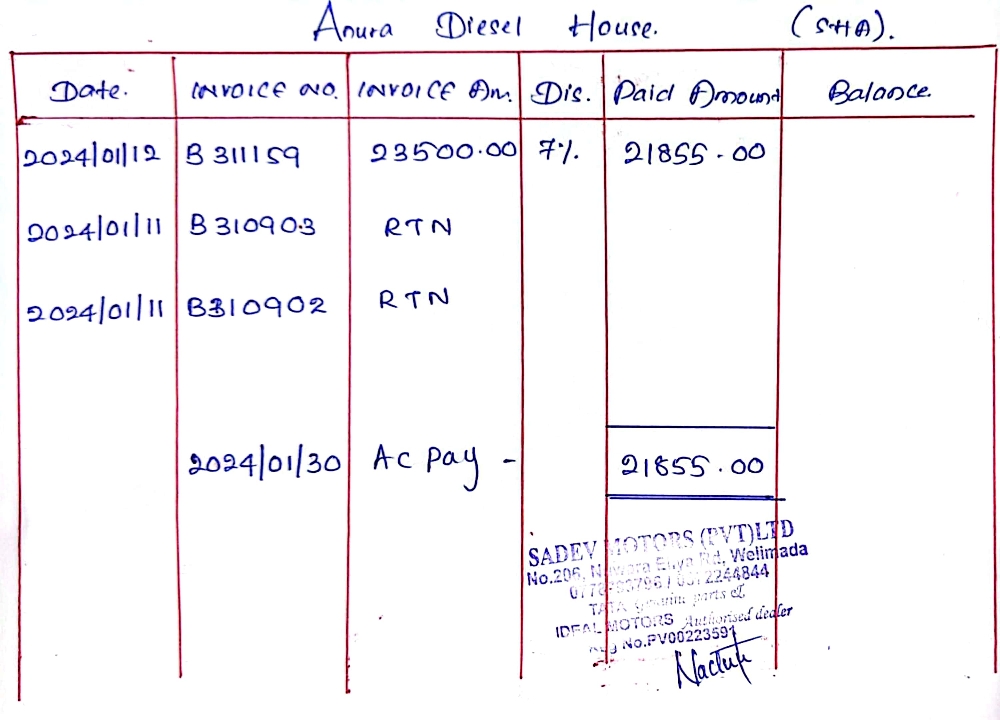 Anura Diesel House. (SHA).
Date. INVOICE NO. INVOICE Am. Dis. Paid Amount Balance.
2024/01/12 B 311159 23500.00 7% 21855.00
2024/01/11 B 310903 RTN
2024/01/11 B310902 RTN
2024/01/30 AC Pay - 21855.00
SADEV MOTORS (PVT)LTD
No.206, Nuwara Eliya Rd, Welimada
2244844
TATA Genuine parts &
IDEAL MOTORS Authorised dealer
Reg No.PV00223591